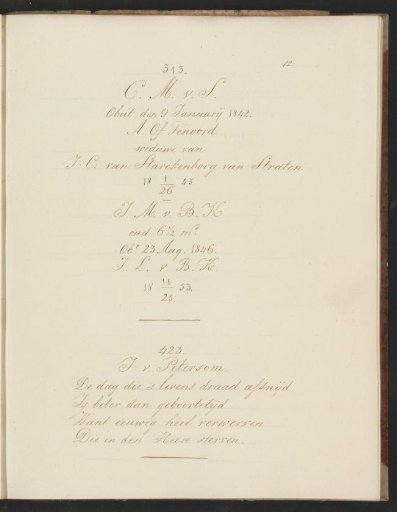 12
313.
C. M. v. S.
Obiit den 9 Januarij 1842.
A Of Fenoord
weduwe van
J. C. van Starckenborg van Straten.
18 1/26 43
J. M. v. B. K
oud 6 1/2 md
Obt 23 Aug. 1846.
J. L. v. B. K.
18 11/25 53.
423.
J. v. Petersom.
De dag die s levens draad afsnijd
Is beter dan geboortetijd
Want eeuwig heil verwerven
Die in den Heere sterven.